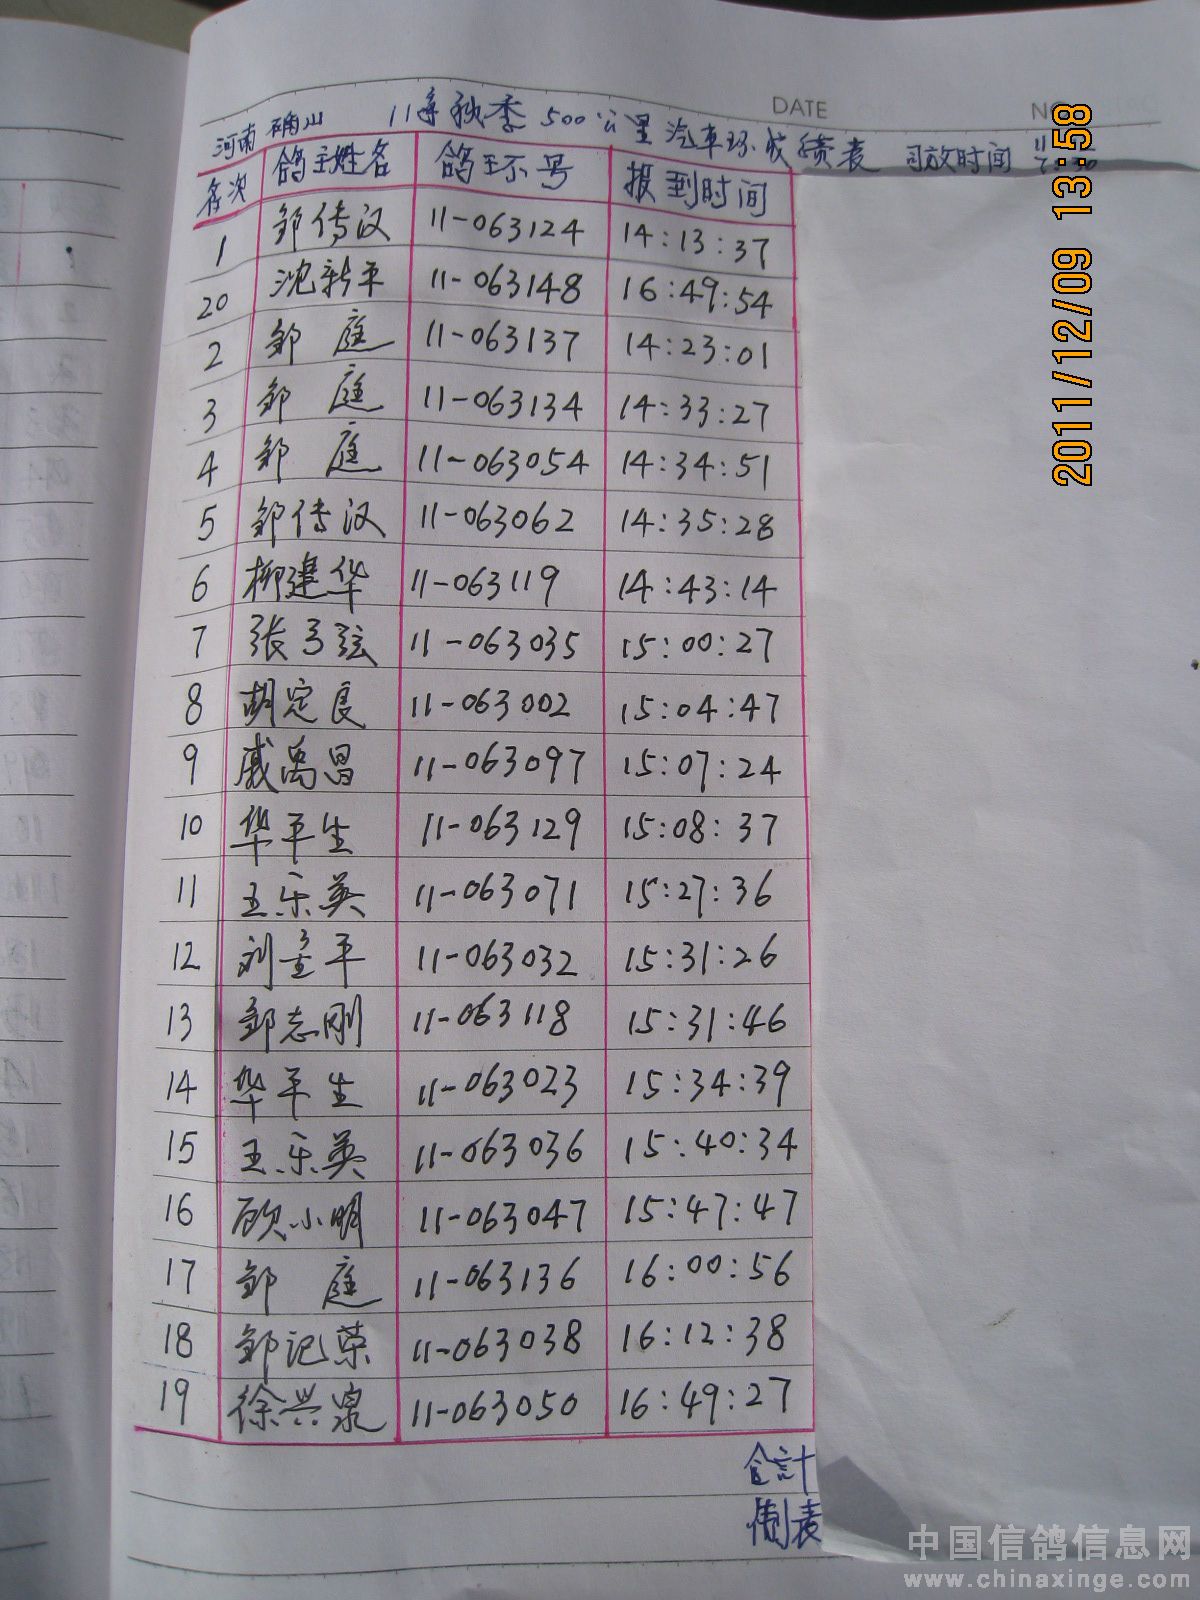 DATE
NO
河南 确山 11年秋季 500公里 汽车环成绩表 司放时间
名次 鸽主姓名 鸽环号 报到时间
1 邹传汉 11-063124 14:13:37
20 沈新平 11-063148 16:49:54
2 邹庭 11-063137 14:23:01
3 邹庭 11-063134 14:33:27
4 邹庭 11-063054 14:34:51
5 邹传汉 11-063062 14:35:28
6 柳建华 11-063119 14:43:14
7 张弓弦 11-063035 15:00:27
8 胡定良 11-063002 15:04:47
9 戚禹昌 11-063097 15:07:24
10 华平生 11-063129 15:08:37
11 王乐英 11-063071 15:27:36
12 刘金平 11-063032 15:31:26
13 邹志刚 11-063118 15:31:46
14 华平生 11-063023 15:34:39
15 王乐英 11-063036 15:40:34
16 顾小明 11-063047 15:47:47
17 邹庭 11-063136 16:00:56
18 邹记荣 11-063038 16:12:38
19 徐兴泉 11-063050 16:49:27
会計
制表
2011/12/09 13:58
中国信鸽信息网
www.chinaxinge.com